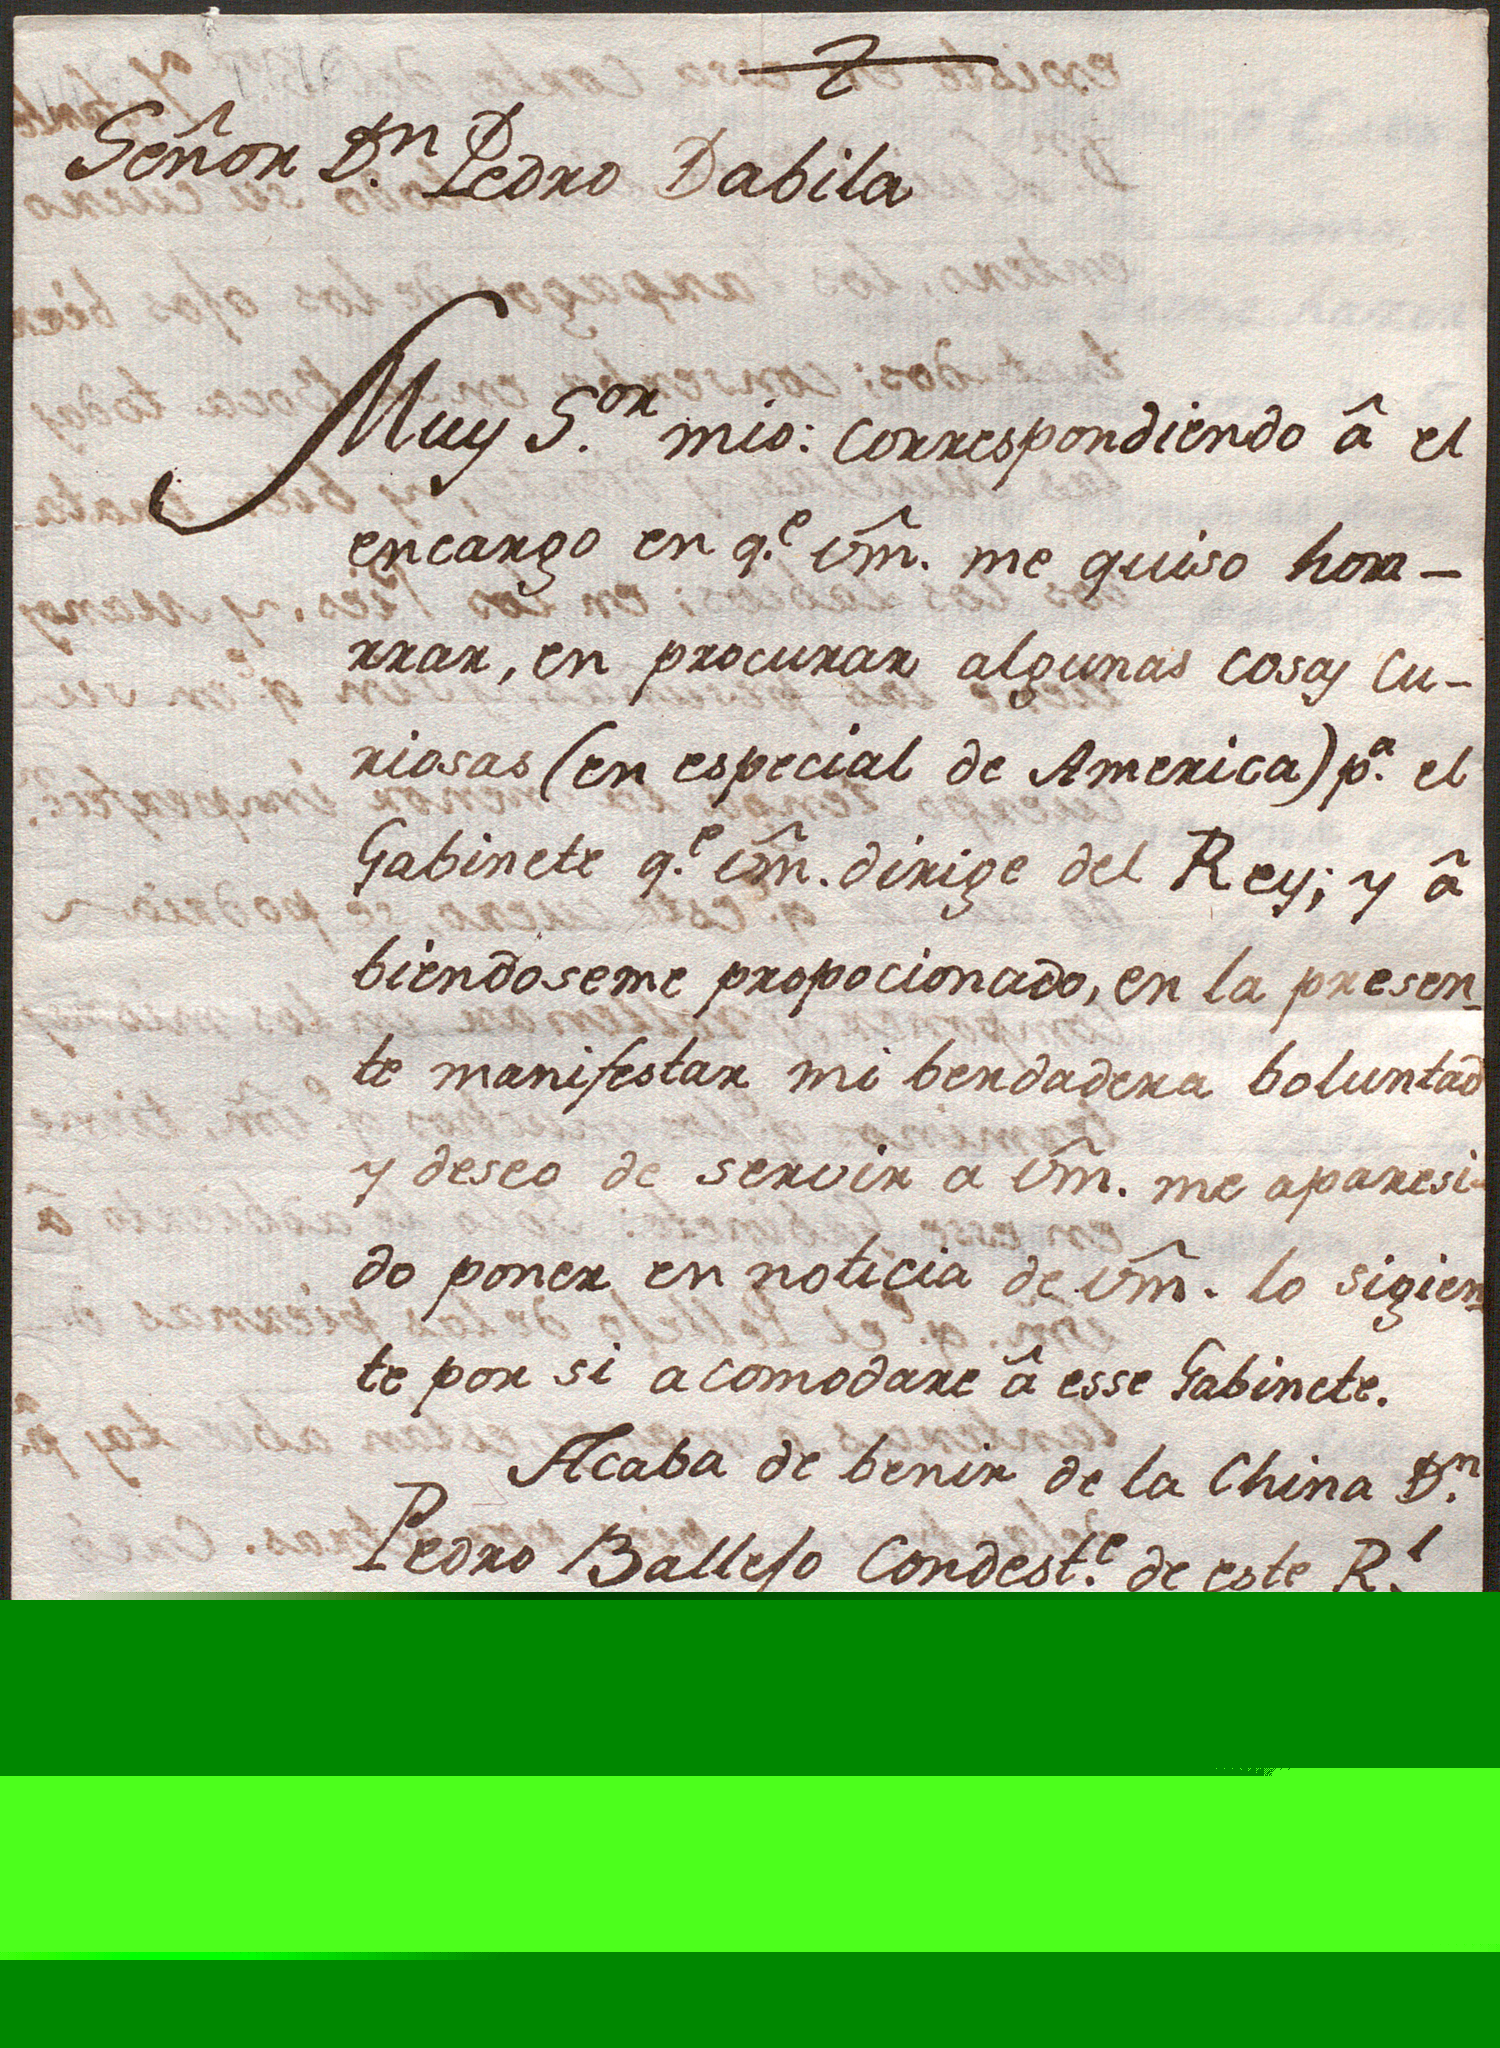 Señor Dn. Pedro Dabila
Muy S.or mio: Correspondiendo â el
encargo en q.e Vm̂. me quiso hon-
rrar, en procurar algunas cosas cu-
riosas (en especial de America) p.a el
Gabinete q.e Vm̂. dirige del Rey; y â
biendoseme propocionado, en la presen-
te manifestar mi berdadera boluntad
y deseo de servir a Vm̂. me aparesi-
do poner en noticia de Vm̂. lo sigien-
te por si acomodare â esse Gabinete.
Acaba de benir de la China D.n
Pedro Ballejo Condest.e de este R.l